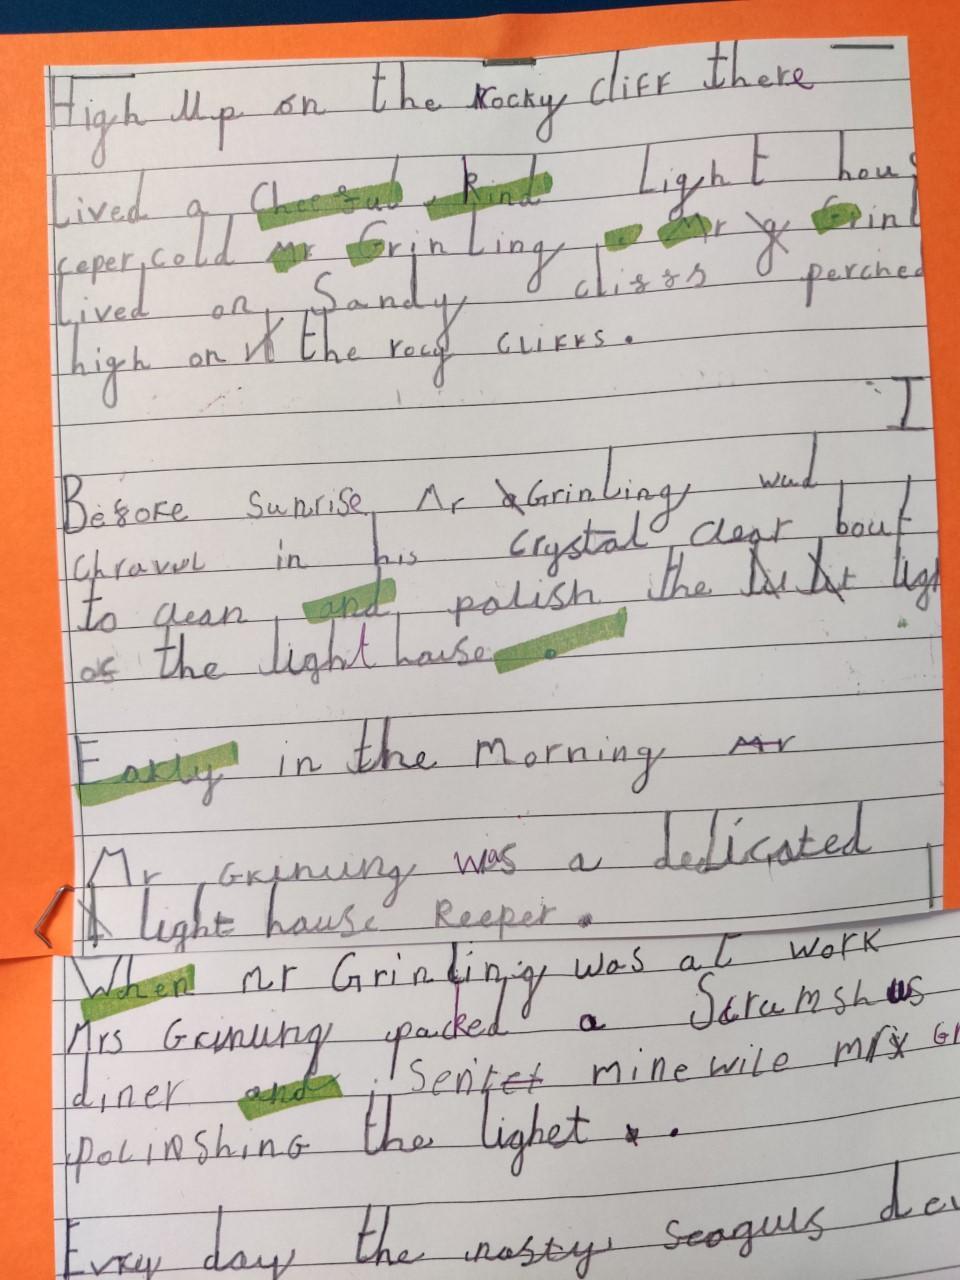 High up on the Rocky cliff there
Lived a Cheerful Kind Light hous
ceper, cold Mr Grinling . Mr g Grinl
Lived on Sandy cliffs perched
high on the rocy cliffs.
I
Before Sunrise Mr Grinling wud
chravul in his crystal clear bout
to clean and polish the ligh
of the light house .
Early in the morning Mr
Mr Grinling was a dedicated
light house keeper.
When Mr Grinling was at work
Mrs Grinling packed a Scrumshus
diner and sent mine wile mr Gr
polinshing the lighet .
Evry day the nasty seaguls dev